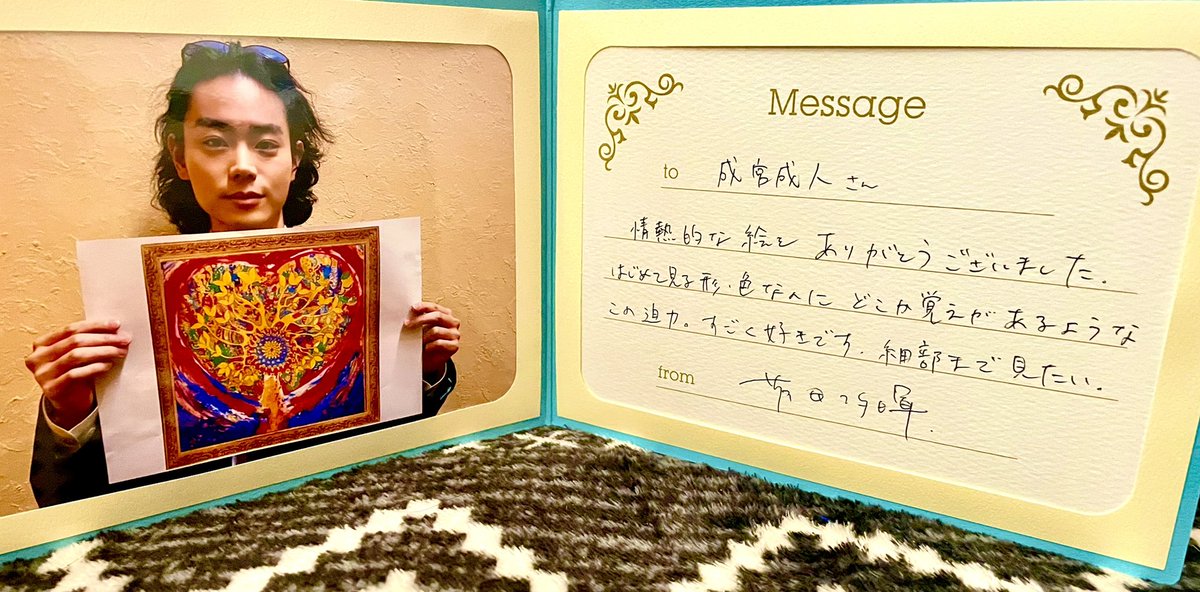 Message
to 成宮成人さん
情熱的な絵を ありがとうございました.
はじめて見る形、色なのに どこか覚えがあるような
この迫力。すごく好きです. 細部まで見たい.
from